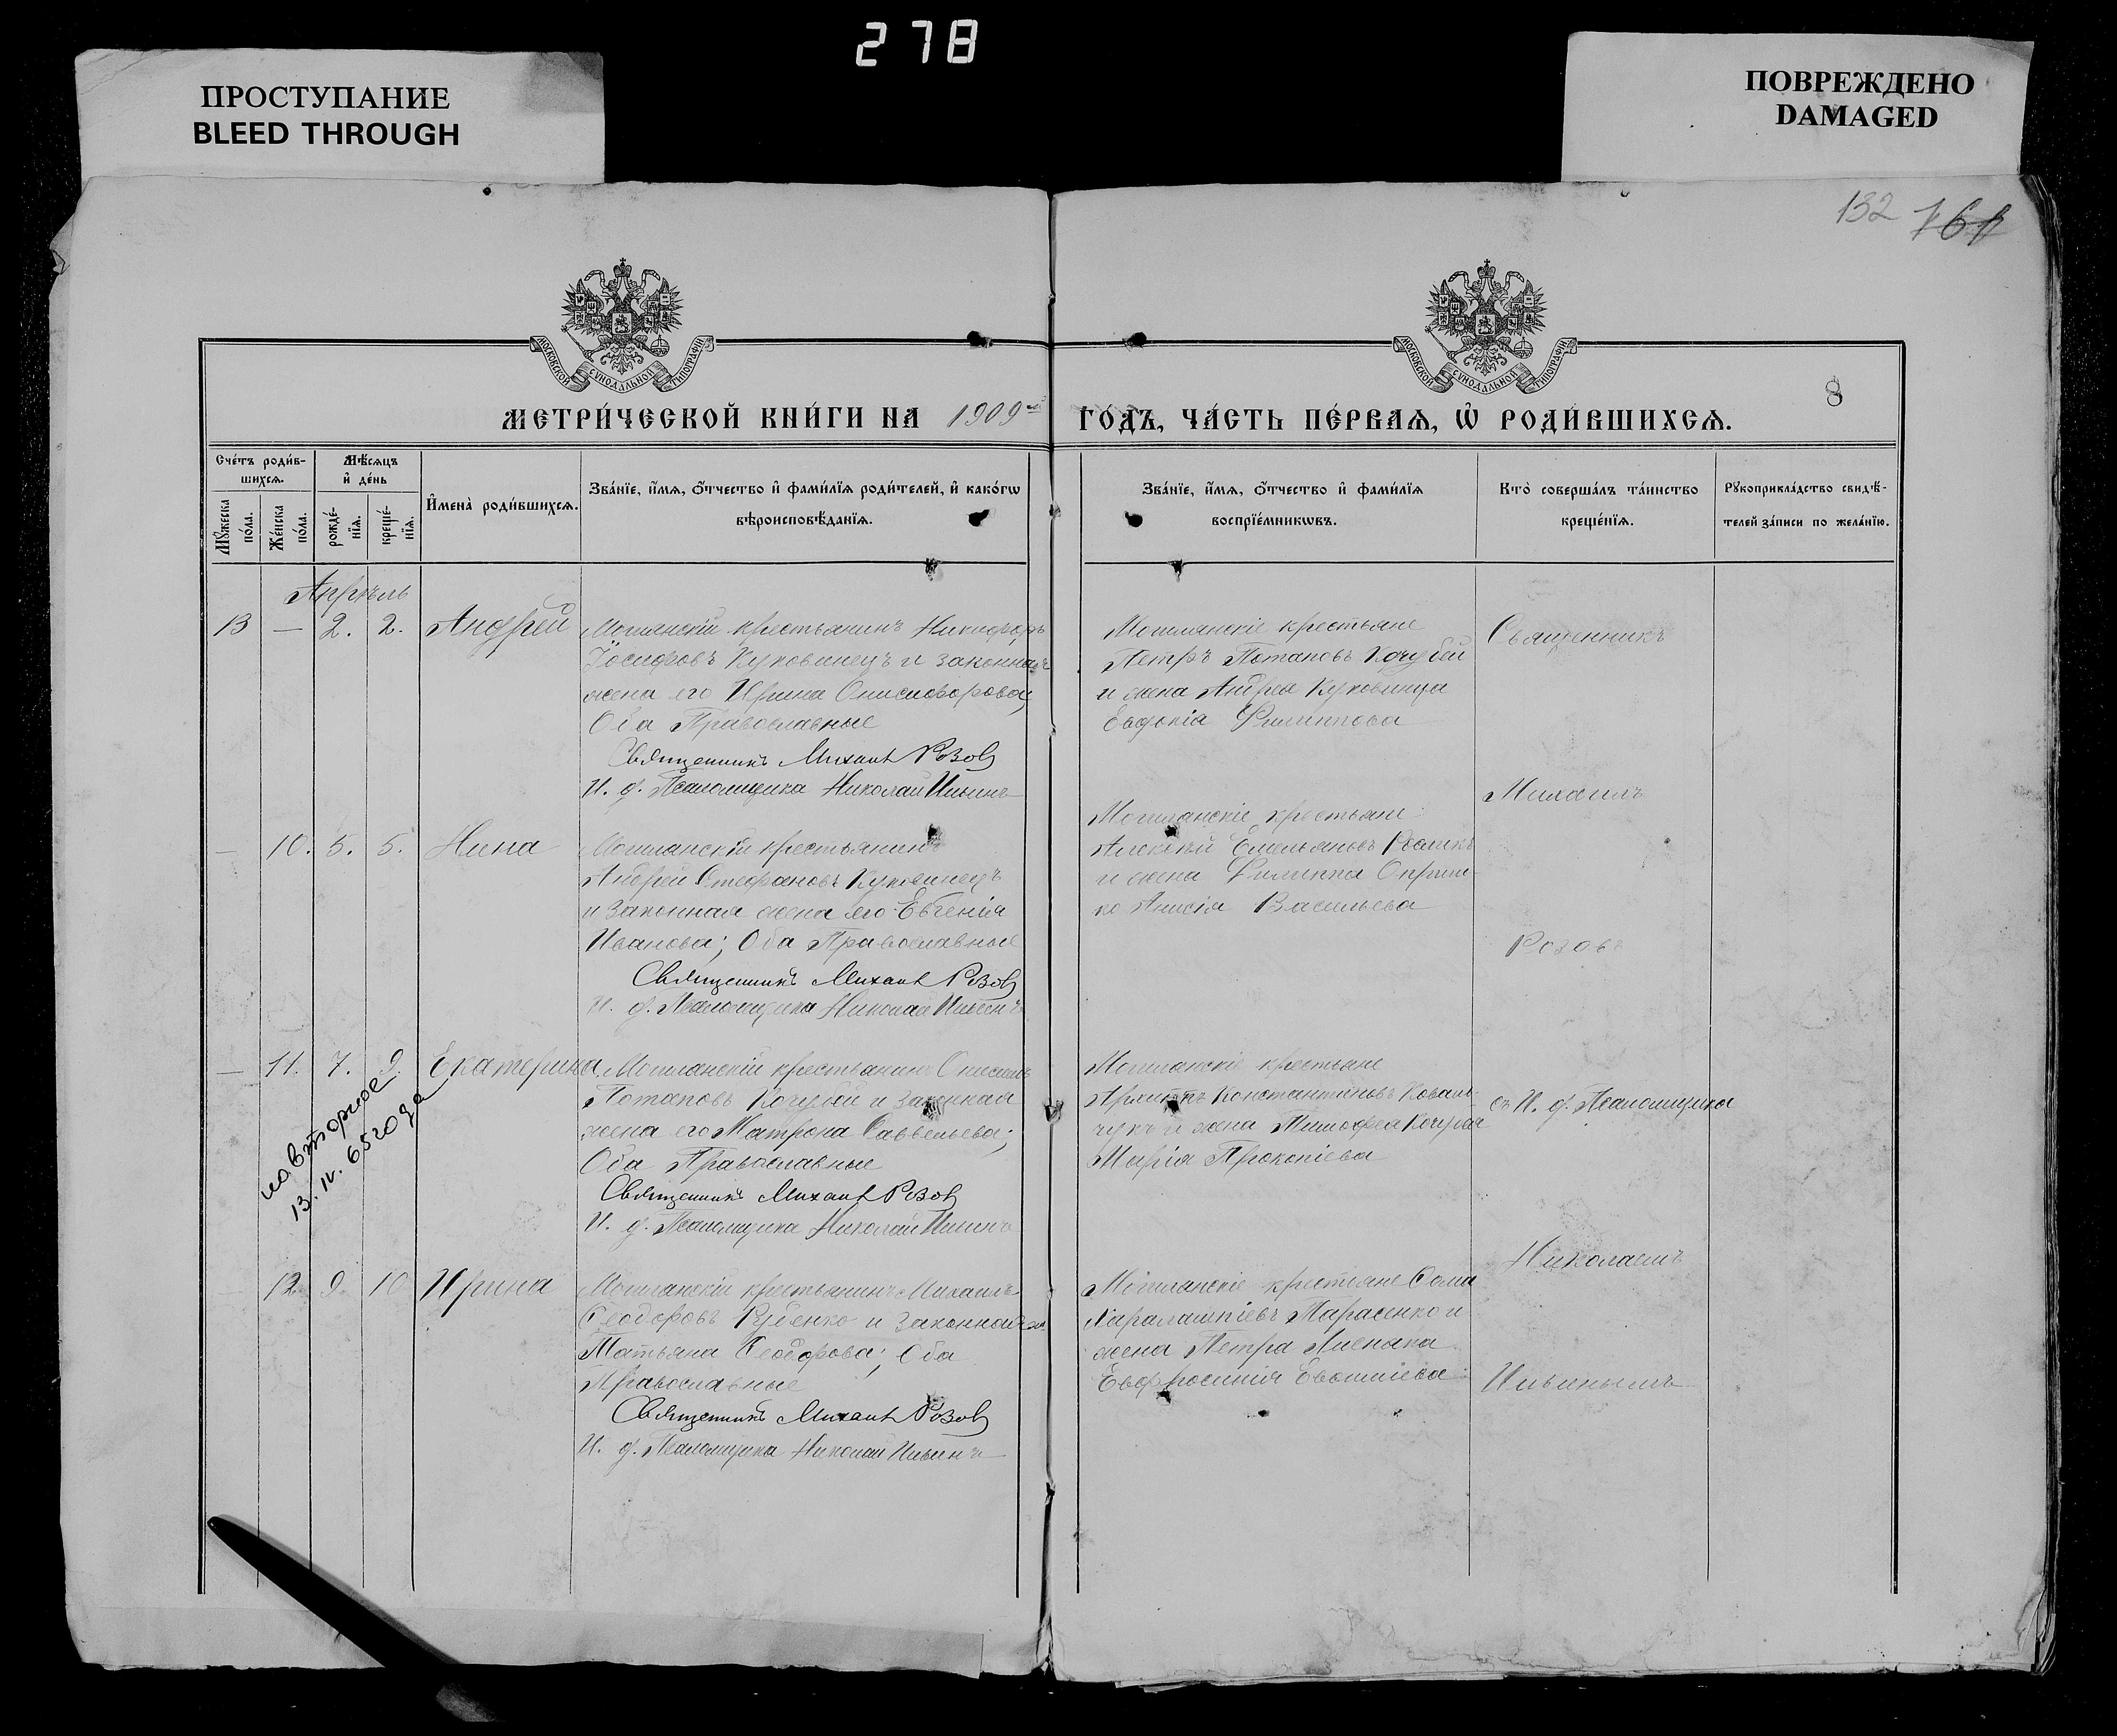 278
ПРОСТУПАНИЕ
BLEED THROUGH
ПОВРЕЖДЕНО
DAMAGED
132 761
МОСКОВСКОЙ СѴНОДАЛЬНОЙ ТИПОГРАФІИ
МОСКОВСКОЙ СѴНОДАЛЬНОЙ ТИПОГРАФІИ
8
МЕТРИ́ЧЕСКОЙ КНИ́ГИ НА 1909 ГО́ДЪ, ЧА́СТЬ ПЕ́РВАѦ, Ѡ҆ РОДИ́ВШИХСѦ.
Сче́тъ роди́в-
шихсѧ.
Мꙋ́жеска по́ла.
Же́нска по́ла.
Мѣ́сѧцъ
и҆ де́нь
рожде́-
нїѧ.
креще́-
нїѧ.
И҆мена̀ роди́вшихсѧ.
Зва́нїе, и҆́мѧ, ѻ҆́тчество и҆ фами́лїѧ роди́телей, и҆ како́гѡ
вѣроисповѣ́данїѧ.
Зва́нїе, и҆́мѧ, ѻ҆́тчество и҆ фами́лїѧ
воспрїе́мникѡвъ.
Кто̀ соверша́лъ та́инство
креще́нїѧ.
Рꙋкоприкла́дство свидѣ́-
телей за́писи по жела́нїю.
Апрѣль
13 — 2. 2. Андрей
крестьянинъ Никифоръ
Іосифовъ Куковинецъ и законная
жена его Ирина Онисифорова,
Оба Православные
Священникъ Михаил Розов
И. д. Псаломщика Николай Ильинъ
крестьяне
Петръ Потаповъ Кочубей
и жена Андрея Куковинца
Евдокія Филиппова
Священникъ
Михаилъ
Розовъ
— 10. 5. 5. Нина
крестьянинъ
Андрей Стефановъ Куковинецъ
и законная жена его Евгенія
Иванова; Оба Православные
Священникъ Михаил Розов
И. д. Псаломщика Николай Ильинъ
крестьяне
Алексѣй Емельяновъ
и жена Филиппа
Анисія Васильева
— 11. 7. 9. Екатерина
крестьянинъ Онисимъ
Потаповъ Кочубей и законная
жена его Матрона Савельева;
Оба Православные
Священникъ Михаил Розов
И. д. Псаломщика Николай Ильинъ
повторное
13. IV. 65 года
крестьяне
Константиновъ Коваль-
чукъ и жена Тимофея Кочубея
Марія Прокопіева
съ И. д. Псаломщика
Николаемъ
Ильинымъ
12. 9. 10 Ирина
крестьянинъ Михаилъ
Ѳеодоровъ Руденко и законная
Татьяна Ѳеодорова; Оба
Православные
Священникъ Михаил Розов
И. д. Псаломщика Николай Ильинъ
крестьяне
Харалампіевъ Тарасенко и
жена Петра
Евфросинія